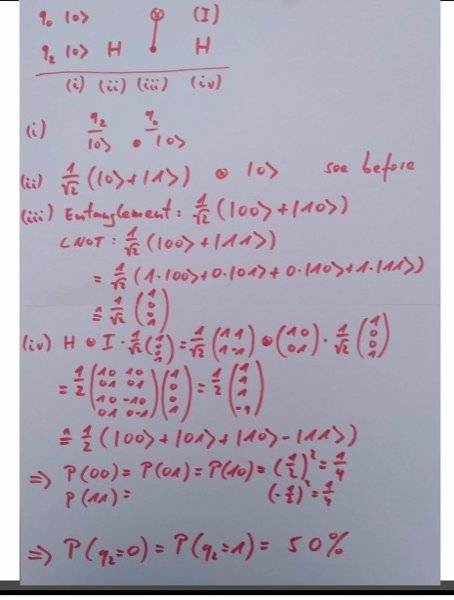 q₀ |0> ⊗ (I)
q₂ |0> H H
(i) (ii) (iii) (iv)
(i) q₂ q₀
|0> ⊗ |0>
(ii) 1/√2 (|0>+|1>) ⊗ |0> see before
(iii) Entanglement: 1/√2 (|00>+|10>)
CNOT: 1/√2 (|00>+|11>)
= 1/√2 (1·|00>+0·|01>+0·|10>+1·|11>)
≙ 1/√2 (1 0 0 1)
(iv) H ⊗ I · 1/√2 (1 0 0 1) = 1/√2 (1 1 1 -1) ⊗ (1 0 0 1) · 1/√2 (1 0 0 1)
= 1/2 (1 0 1 0 0 1 0 1 1 0 -1 0 0 1 0 -1) (1 0 0 1) = 1/2 (1 1 1 -1)
≙ 1/2 (|00>+|01>+|10>-|11>)
=> P(00) = P(01) = P(10) = (1/2)² = 1/4
P(11) = (-1/2)² = 1/4
=> P(q₂=0) = P(q₂=1) = 50%